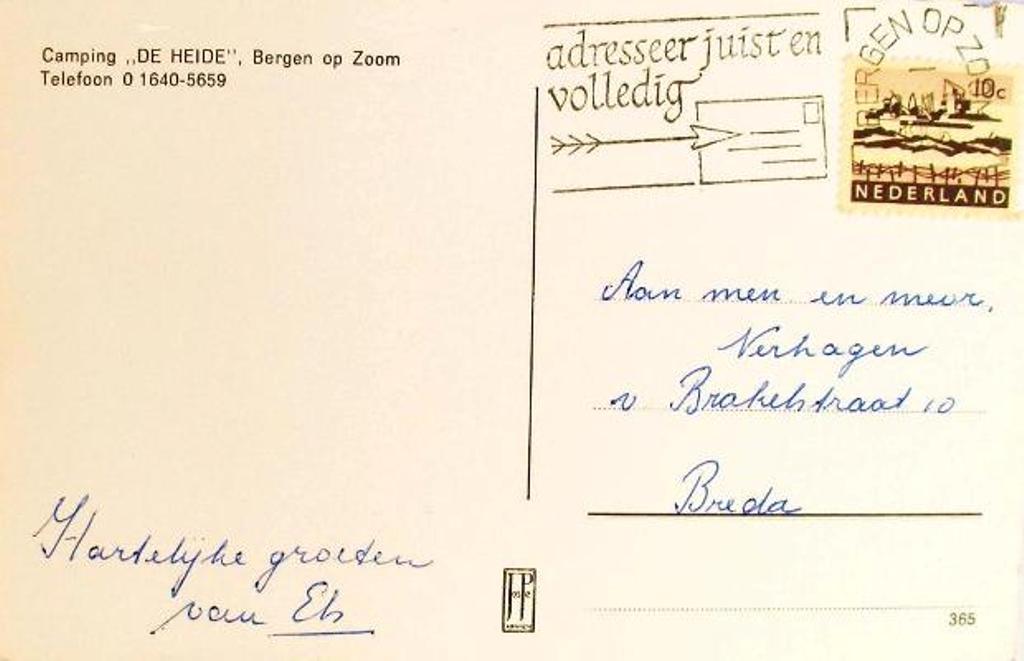 Camping „DE HEIDE”, Bergen op Zoom
Telefoon 0 1640-5659
adresseer juist en
volledig
BERGEN OP ZOOM
10c
NEDERLAND
Aan men en mevr.
Verhagen
v Brakelstraat 10
Breda
Hartelijke groeten
van Els
JosPé
365